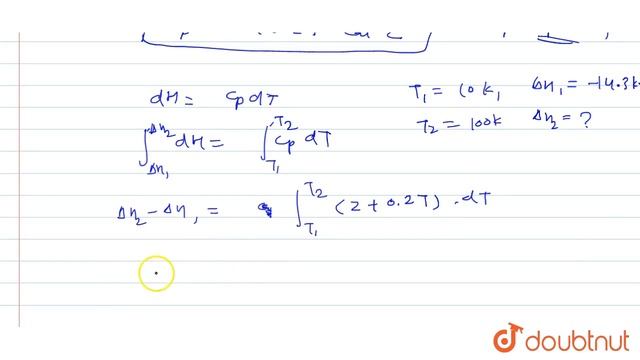 dH = Cp dT
T₁ = 10 K, ΔH₁ = -14.3 k
∫_{ΔH₁}^{ΔH₂} dH = ∫_{T₁}^{T₂} Cp dT
T₂ = 100K ΔH₂ = ?
ΔH₂ - ΔH₁ = ∫_{T₁}^{T₂} (2 + 0.2T) . dT
doubtnut